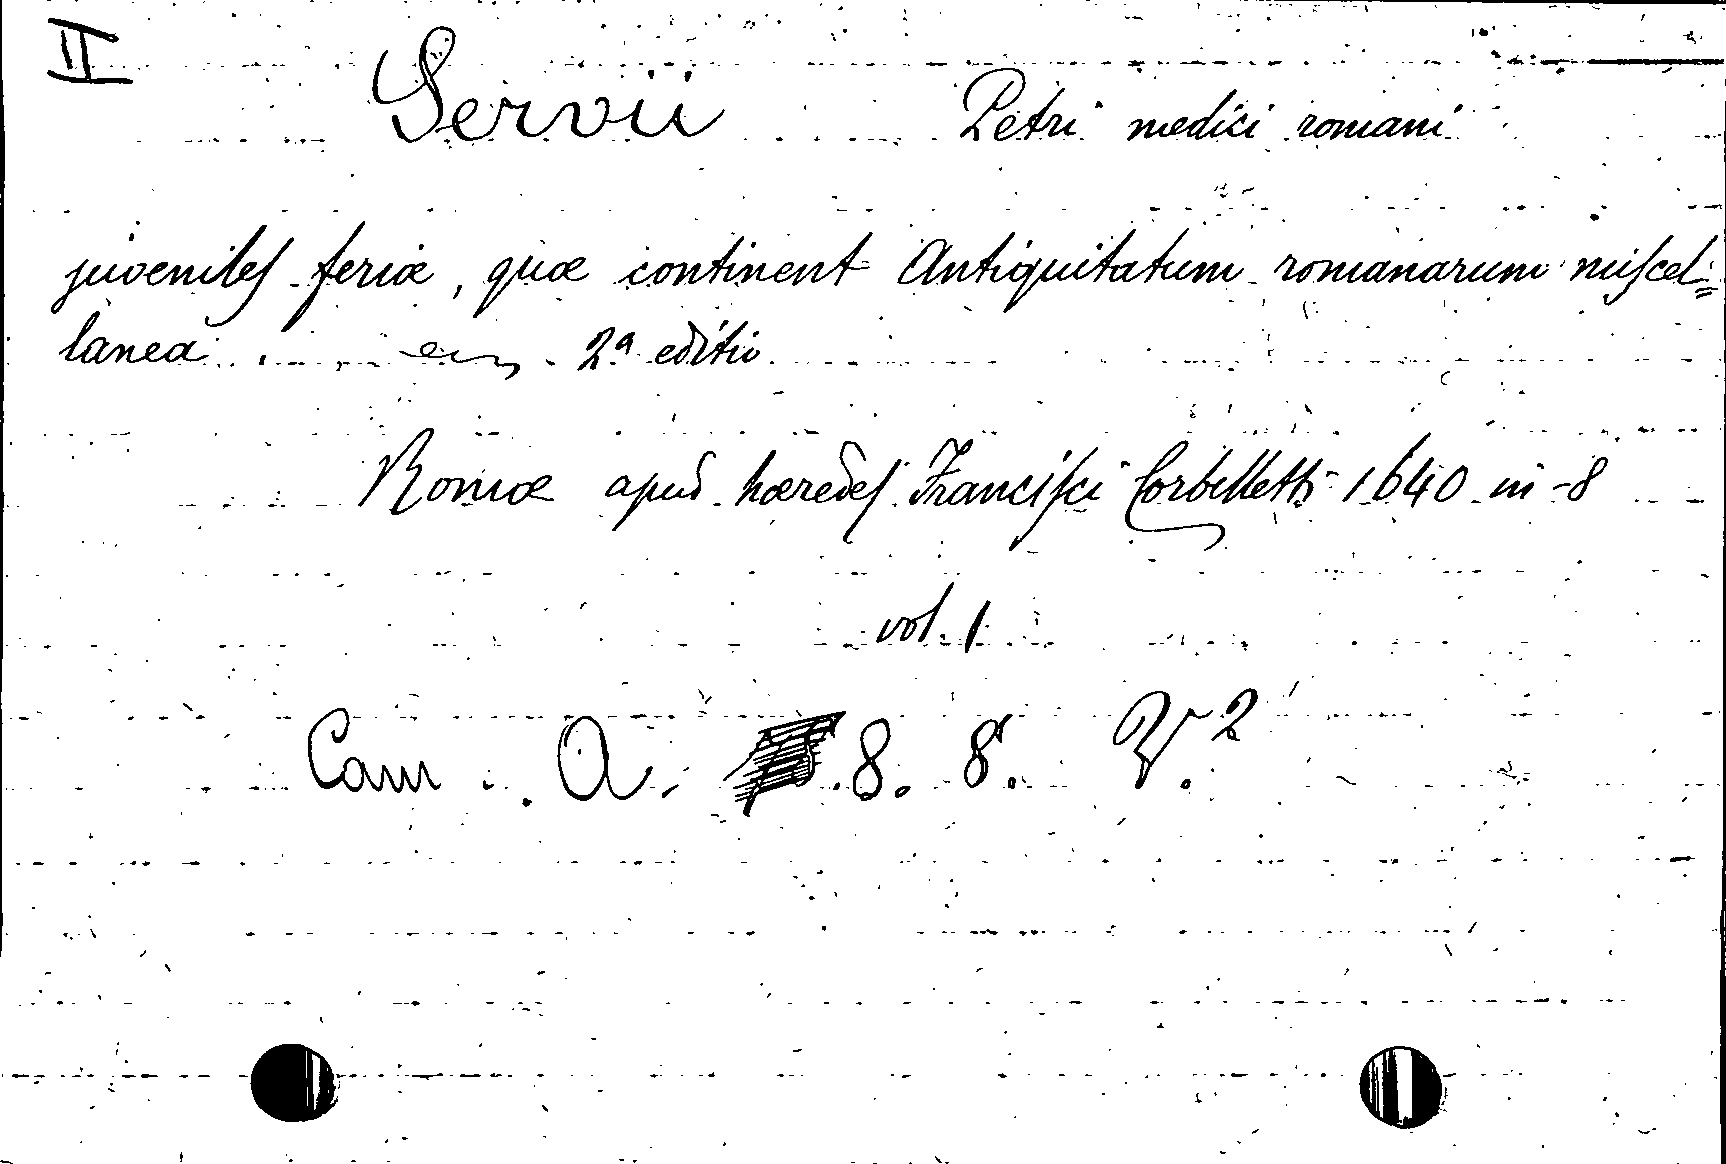 II
Servii Petri medici romani
juveniles feriæ, quæ continent Antiquitatum romanarum miscel=
lanea 2ª editio
Romæ apud hæredes Francisci Corbelletti 1640 in-8
vol. 1
Cam. A. 8. 8. V.2